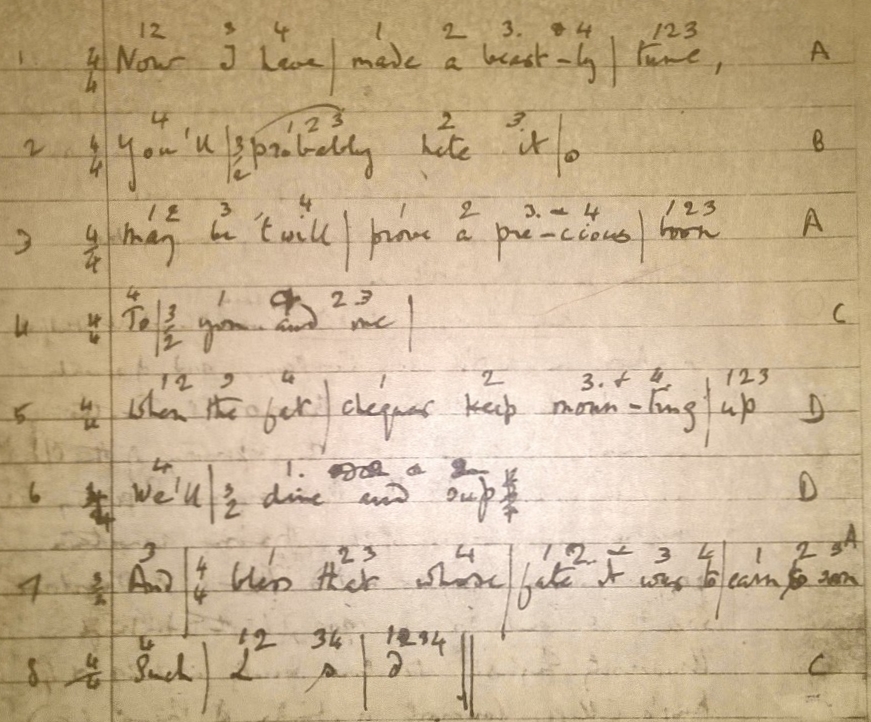 12 3 4 1 2 3. 4 123
1 4/4 Now I have | made a beast-ly | tune, A
4 1 2 3 2 3.
2 4/4 You'll | 3/2 probably hate it | B
12 3 4 1 2 3. 4 123
3 4/4 May be 'twill | prove a pre-cious | boon A
4 1 2 3
4 4/4 To | 3/2 you and me | C
12 3 4 1 2 3. 4 123
5 4/4 When the fat | cheques keep moun-ting | up D
4 1.
6 We'll | 3/2 dine and sup D
3 1 2 3 4 1 2. 3 4 1 2 3 A
7 3/2 And | 4/4 bless that whose | fate it was to | earn so soon
4 12 34 1234
8 4/4 Such | L s | d || C